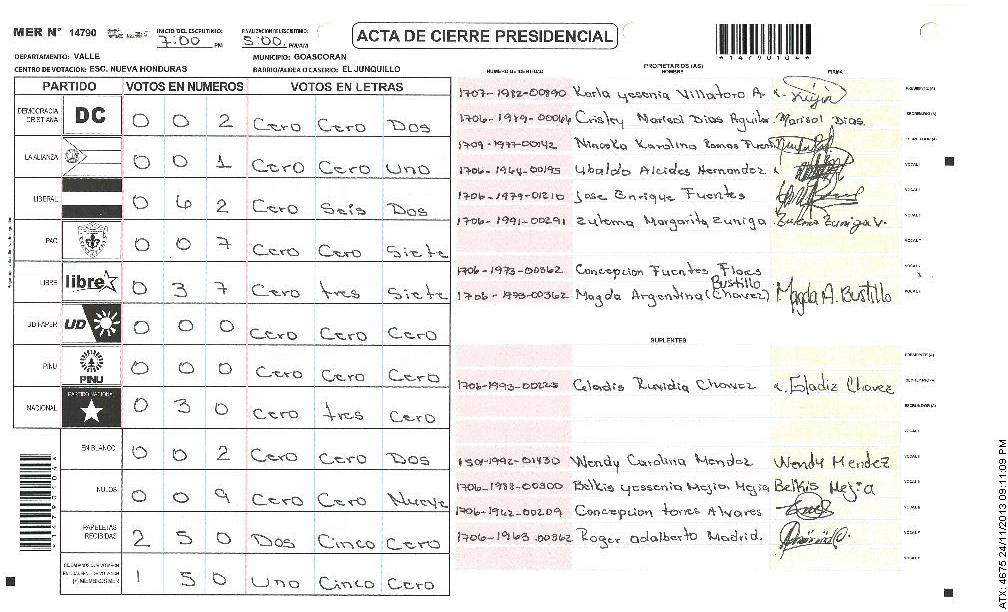 MER N° 14790 INICIO DEL ESCRUTINIO: 7:00 PM FINALIZACION DEL ESCRUTINIO: 5:00 PM/AM
ACTA DE CIERRE PRESIDENCIAL
*14790104*
DEPARTAMENTO: VALLE MUNICIPIO: GOASCORAN
CENTRO DE VOTACION: ESC. NUEVA HONDURAS BARRIO/ALDEA O CASERIO: EL JUNQUILLO
PARTIDO VOTOS EN NUMEROS VOTOS EN LETRAS
DEMOCRACIA CRISTIANA DC 0 0 2 Cero Cero Dos
LA ALIANZA 0 0 1 Cero Cero Uno
LIBERAL 0 6 2 Cero Seis Dos
PAC 0 0 7 Cero Cero Siete
LIBRE libre 0 3 7 Cero tres Siete
UD FAPER UD 0 0 0 Cero Cero Cero
PINU PINU 0 0 0 Cero Cero Cero
NACIONAL PARTIDO NACIONAL 0 3 0 Cero tres Cero
EN BLANCO 0 0 2 Cero Cero Dos
NULOS 0 0 9 Cero Cero Nueve
PAPELETAS RECIBIDAS 2 5 0 Dos Cinco Cero
(+) MIEMBROS MER 1 5 0 Uno Cinco Cero
PROPIETARIOS (AS)
NUMERO DE IDENTIDAD NOMBRE FIRMA
1707-1982-00890 Karla yesenia Villatoro A. PRESIDENTE (A)
1706-1989-00066 Cristey Marisol Dias Aguilar Marisol Dias SECRETARIO (A)
1709-1977-00142 Ninoska Karolina Ramos Fuentes ESCRUTADOR (A)
1706-1964-00195 Ubaldo Alcides Hernandez VOCAL I
1706-1979-01210 Jose Enrique Fuentes VOCAL II
1706-1991-00291 Zulema Margarita Zuniga Zulema Zuniga V.
1706-1973-00362 Concepcion Fuentes Flores
Bustillo
1706-1993-00362 Magda Argentina (Chavez) Magda A. Bustillo
SUPLENTES
PRESIDENTE (A)
1706-1993-00225 Celadis Runidia Chavez Eladiz Chavez SECRETARIO (A)
ESCRUTADOR (A)
1501-1992-01430 Wendy Carolina Mendez Wendy Mendez
1706-1988-00300 Belkis yessenia Mejia Mejia Belkis Mejia
1706-1962-00209 Concepcion torres Alvares
1706-1963-00362 Roger adalberto Madrid.
ATX: 4675 24/11/2013 09:11:09 PM